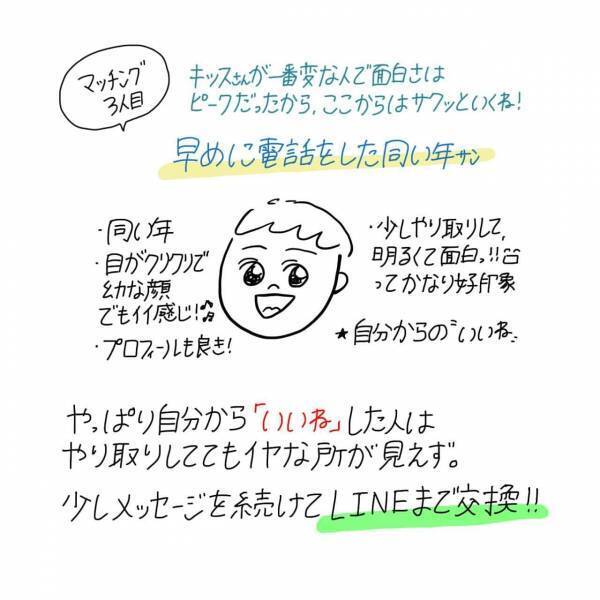 マッチング
3人目
キッスさんが一番変な人で面白さは
ピークだったから、ここからはサクッといくね!
早めに電話をした同い年サン
・同い年
・目がクリクリで
幼な顔
でもイイ感じ!♫
・プロフィールも良き!
・少しやり取りして、
明るくて面白っ!!
ってかなり好印象
★自分からの"いいね"
やっぱり自分から「いいね」した人は
やり取りしててもイヤな所が見えず。
少しメッセージを続けてLINEまで交換!!